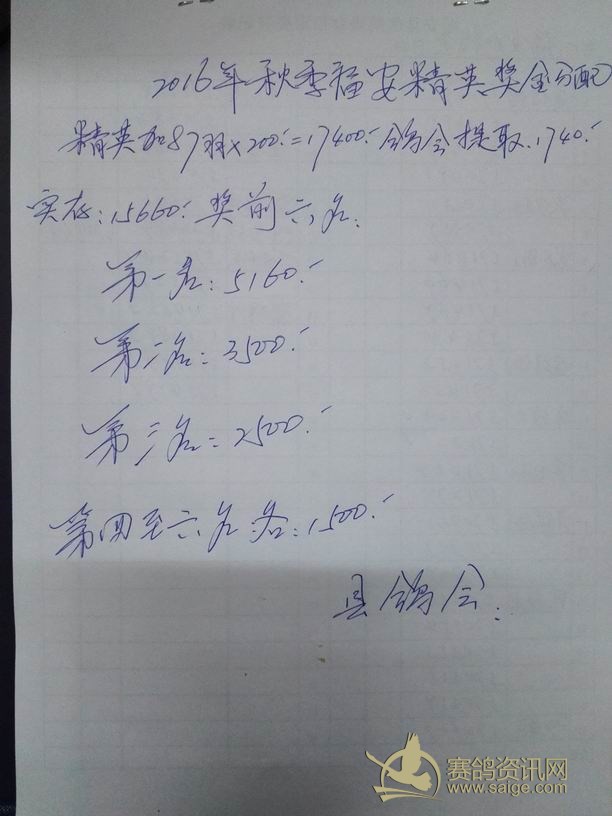 2016年秋季福安精英奖金分配
精英加87羽×200.-=17400.- 鸽会提取.1740.-
实存:15660.- 奖前六名.
第一名:5160.-
第二名:3500.-
第三名:2500.-
第四至六名各:1500.-
县鸽会.
赛鸽资讯网
www.saige.com